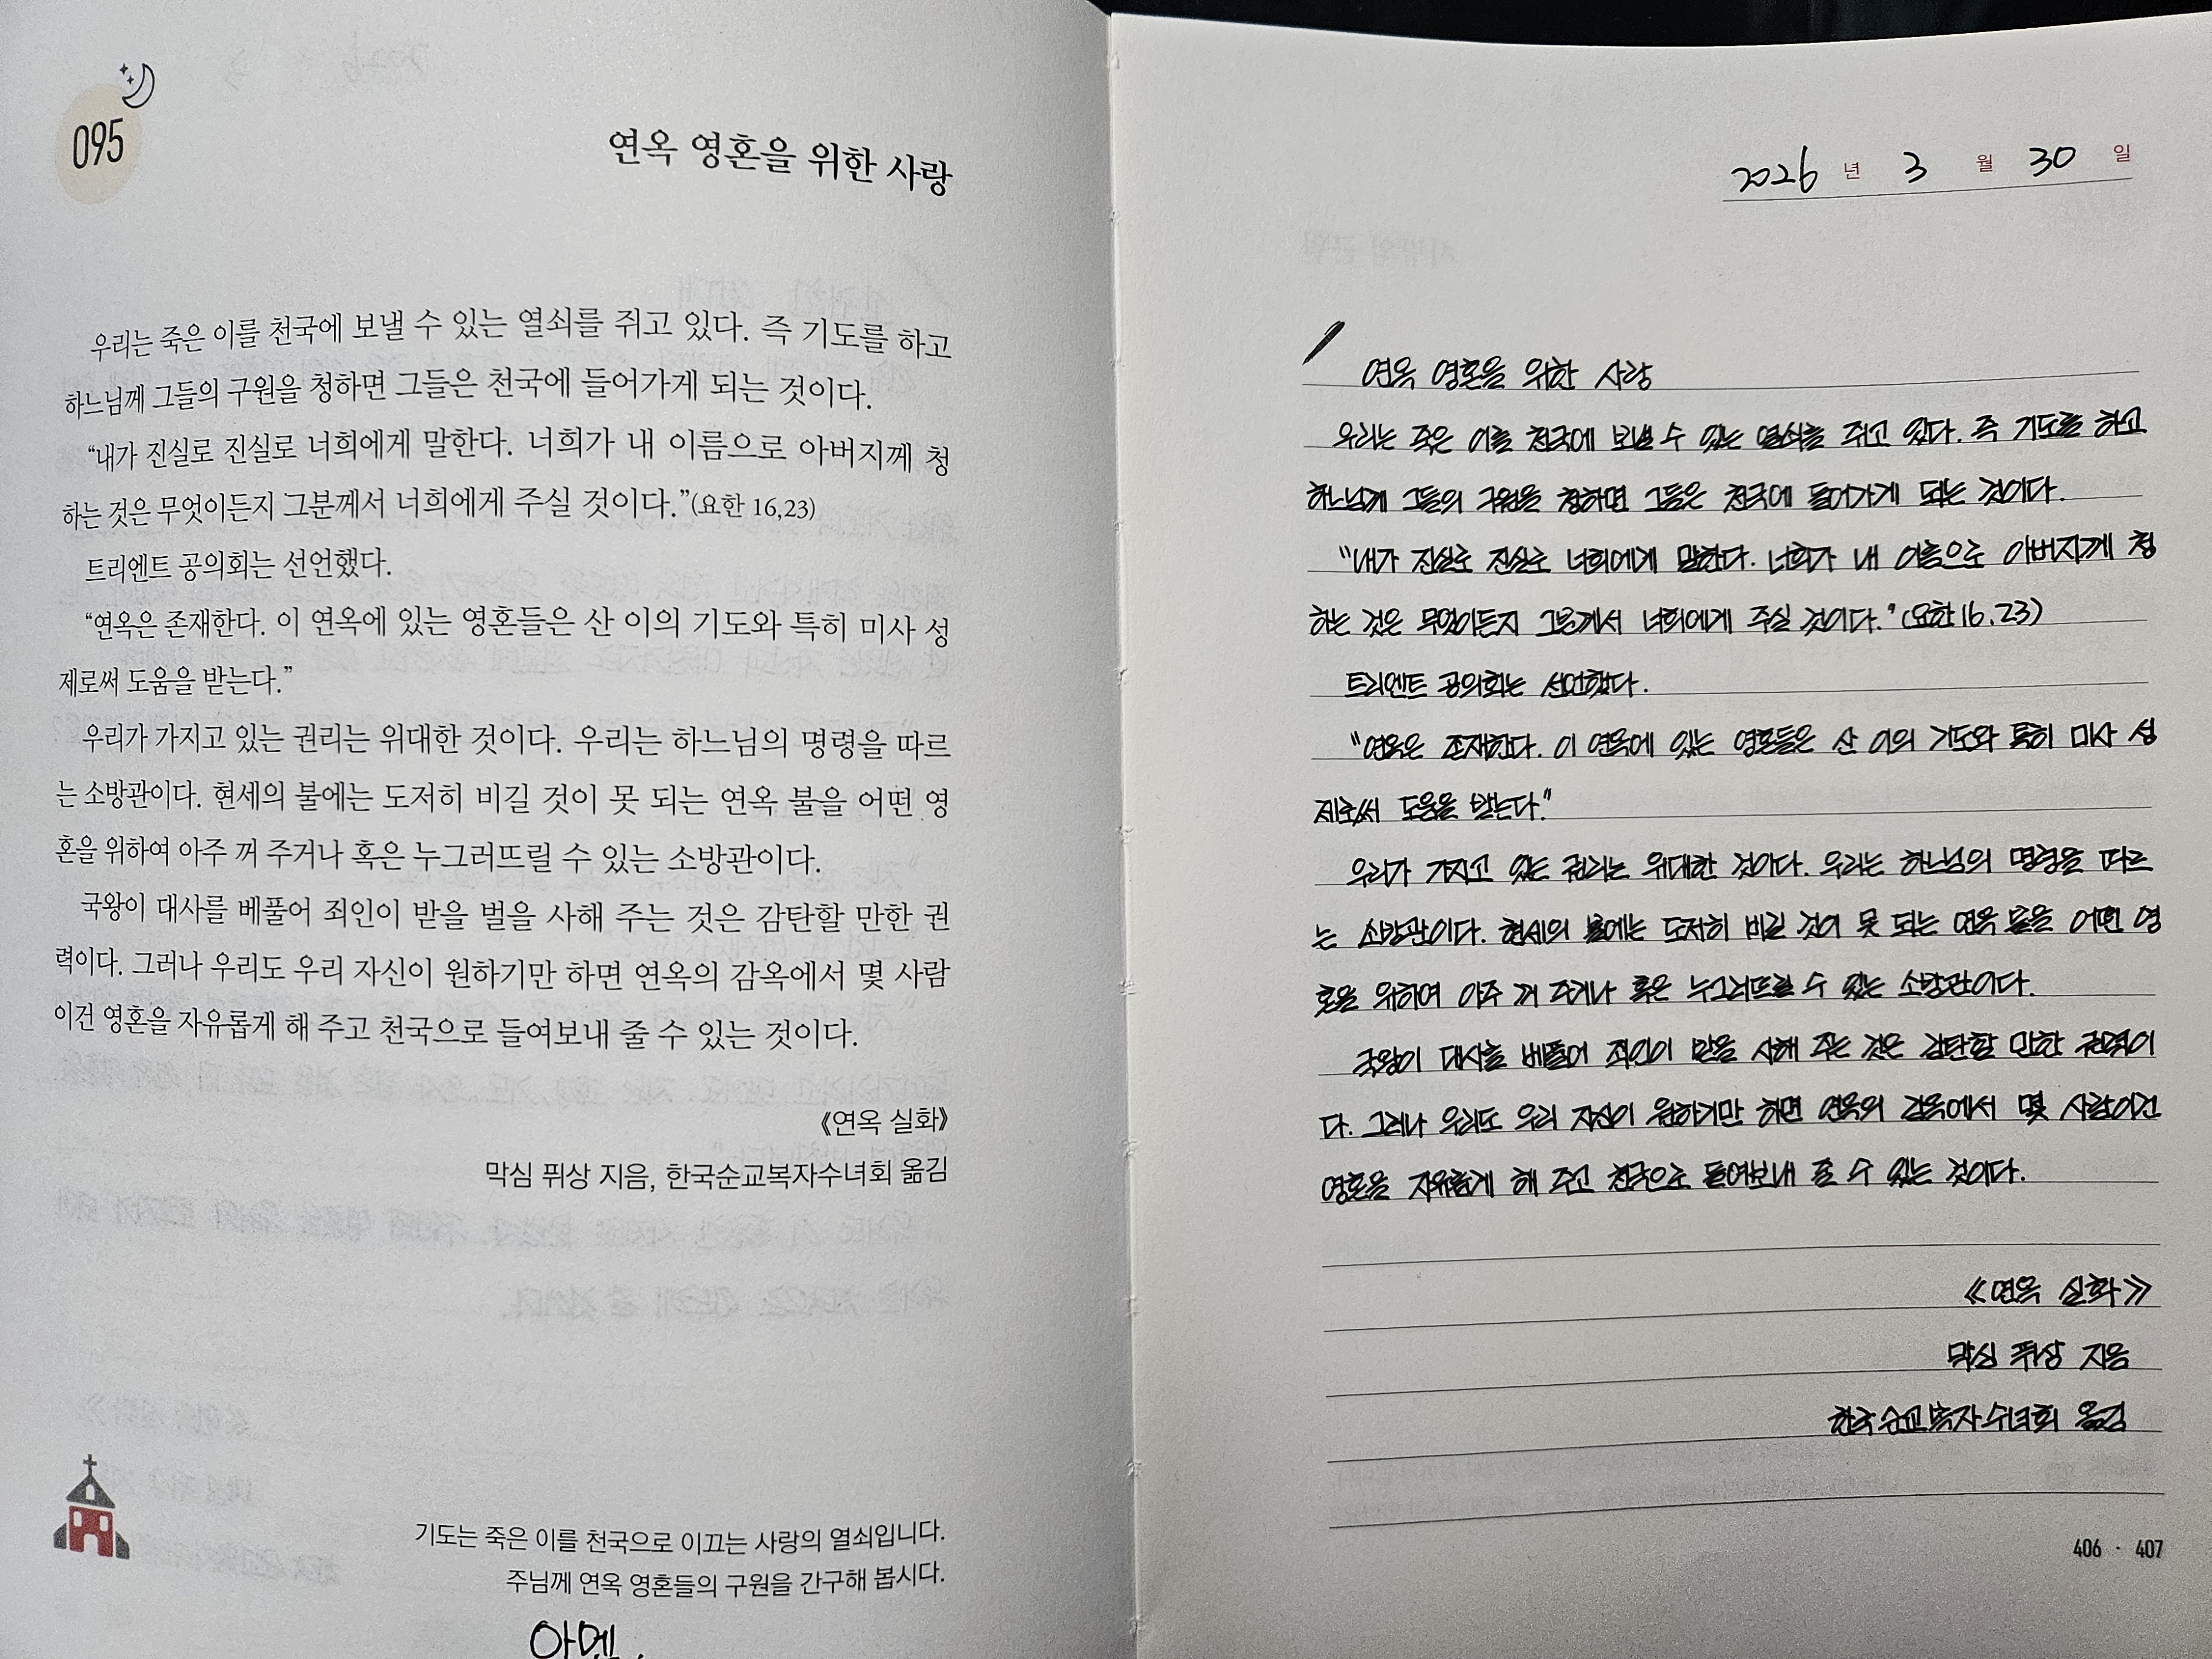 095
연옥 영혼을 위한 사랑
우리는 죽은 이를 천국에 보낼 수 있는 열쇠를 쥐고 있다. 즉 기도를 하고
하느님께 그들의 구원을 청하면 그들은 천국에 들어가게 되는 것이다.
“내가 진실로 진실로 너희에게 말한다. 너희가 내 이름으로 아버지께 청
하는 것은 무엇이든지 그분께서 너희에게 주실 것이다.”(요한 16,23)
트리엔트 공의회는 선언했다.
“연옥은 존재한다. 이 연옥에 있는 영혼들은 산 이의 기도와 특히 미사 성
제로써 도움을 받는다.”
우리가 가지고 있는 권리는 위대한 것이다. 우리는 하느님의 명령을 따르
는 소방관이다. 현세의 불에는 도저히 비길 것이 못 되는 연옥 불을 어떤 영
혼을 위하여 아주 꺼 주거나 혹은 누그러뜨릴 수 있는 소방관이다.
국왕이 대사를 베풀어 죄인이 받을 벌을 사해 주는 것은 감탄할 만한 권
력이다. 그러나 우리도 우리 자신이 원하기만 하면 연옥의 감옥에서 몇 사람
이건 영혼을 자유롭게 해 주고 천국으로 들여보내 줄 수 있는 것이다.
《연옥 실화》
막심 퓌상 지음, 한국순교복자수녀회 옮김
기도는 죽은 이를 천국으로 이끄는 사랑의 열쇠입니다.
주님께 연옥 영혼들의 구원을 간구해 봅시다.
아멘.
2026 년 3 월 30 일
연옥 영혼을 위한 사랑
우리는 죽은 이를 천국에 보낼 수 있는 열쇠를 쥐고 있다. 즉 기도를 하고
하느님께 그들의 구원을 청하면 그들은 천국에 들어가게 되는 것이다.
"내가 진실로 진실로 너희에게 말한다. 너희가 내 이름으로 아버지께 청
하는 것은 무엇이든지 그분께서 너희에게 주실 것이다."(요한 16,23)
트리엔트 공의회는 선언했다.
"연옥은 존재한다. 이 연옥에 있는 영혼들은 산 이의 기도와 특히 미사 성
제로써 도움을 받는다."
우리가 가지고 있는 권리는 위대한 것이다. 우리는 하느님의 명령을 따르
는 소방관이다. 현세의 불에는 도저히 비길 것이 못 되는 연옥 불을 어떤 영
혼을 위하여 아주 꺼 주거나 혹은 누그러뜨릴 수 있는 소방관이다.
국왕이 대사를 베풀어 죄인이 받을 사해 주는 것은 감탄할 만한 권력이
다. 그러나 우리도 우리 자신이 원하기만 하면 연옥의 감옥에서 몇 사람이건
영혼을 자유롭게 해 주고 천국으로 들여보내 줄 수 있는 것이다.
《연옥 실화》
막심 퓌상 지음
한국순교복자수녀회 옮김
406 · 407